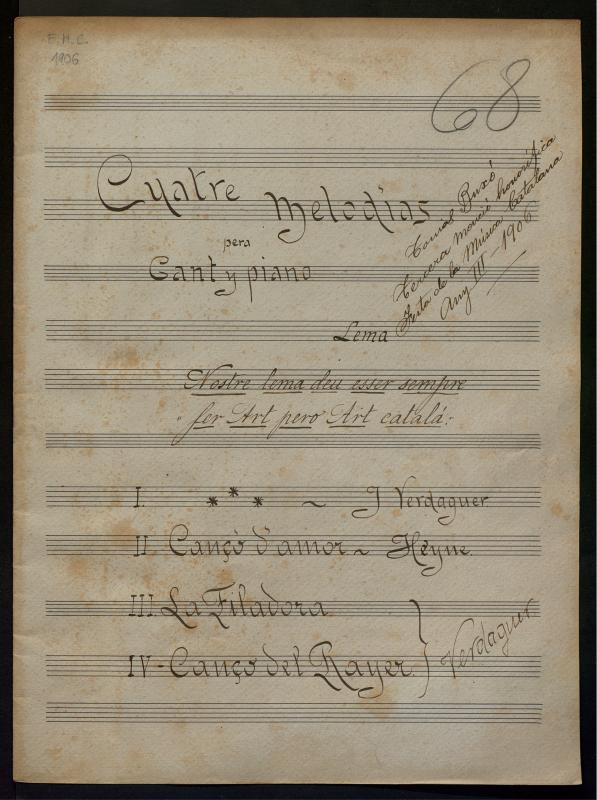 F. M. C.
1906
68
Cuatre Melodías
pera
Cant y piano
Tomás Buxó
Tercera menció honorífica
Festa de la Música Catalana
Any III – 1906
Lema
Nostre lema deu esser sempre
"fer Art pero Art catalá:-
I. *** ~ J Verdaguer
II Cançó d'amor ~ Heyne
III. La Filadora
IV - Canço del Rayer. } Verdaguer